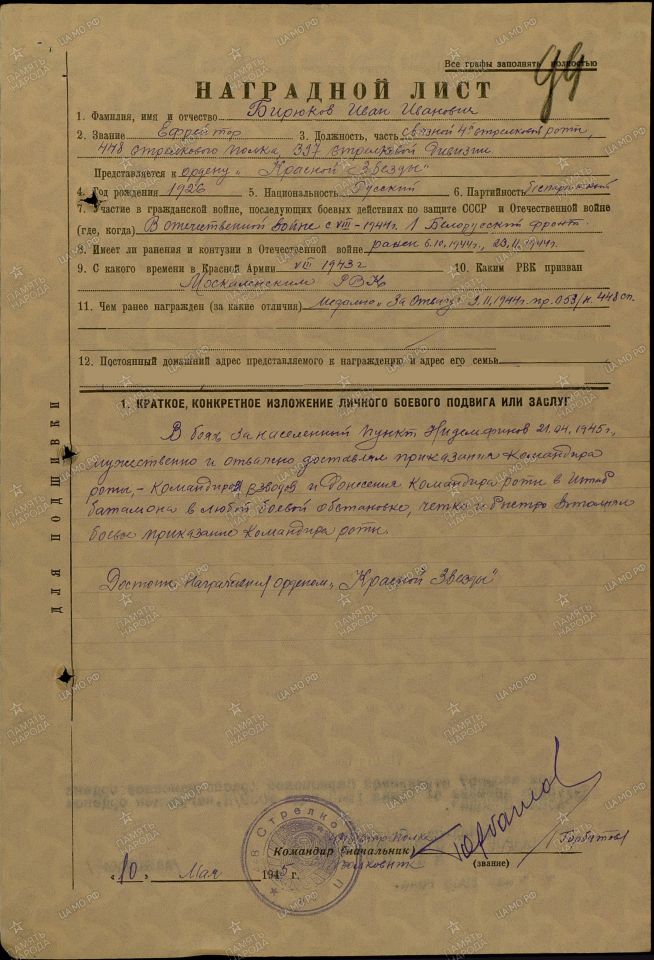 Все графы заполнять полностью
99
НАГРАДНОЙ ЛИСТ
1. Фамилия, имя и отчество Бирюков Иван Иванович
2. Звание Ефрейтор 3. Должность, часть связной 4й стрелковой роты,
448 стрелкового полка, 397 стрелковой дивизии
Представляется к ордену „Красной Звезды"
4. Год рождения 1926 5. Национальность Русский 6. Партийность беспартийный
7. Участие в гражданской войне, последующих боевых действиях по защите СССР и Отечественной войне
(где, когда) В отечественной войне с VIII-1944г. 1 Белорусский фронт.
8. Имеет ли ранения и контузии в Отечественной войне ранен 6.10.1944г., 23.11.1944г.
9. С какого времени в Красной Армии VIII 1943г 10. Каким РВК призван
Москаленским РВК
11. Чем ранее награжден (за какие отличия) медалью „За Отвагу" 9.11.1944г. пр. 053/н. 448 сп.
12. Постоянный домашний адрес представляемого к награждению и адрес его семьи
1. КРАТКОЕ, КОНКРЕТНОЕ ИЗЛОЖЕНИЕ ЛИЧНОГО БОЕВОГО ПОДВИГА ИЛИ ЗАСЛУГ
В боях за населенный пункт 21.04.1945г.,
мужественно и отважно доставлял приказания командира
роты, - командирам взводов и донесения командира роты в штаб
батальона в любой боевой обстановке, четко и быстро выполнял
боевые приказания командира роты.
Достоин награждения орденом „Красной Звезды"
ДЛЯ ПОДШИВКИ
Командир полка
Командир (начальник)
Полковник
(звание)
/Горбатов/
„10" Мая 1945 г.
ПАМЯТЬ НАРОДА
ЦАМО.РФ